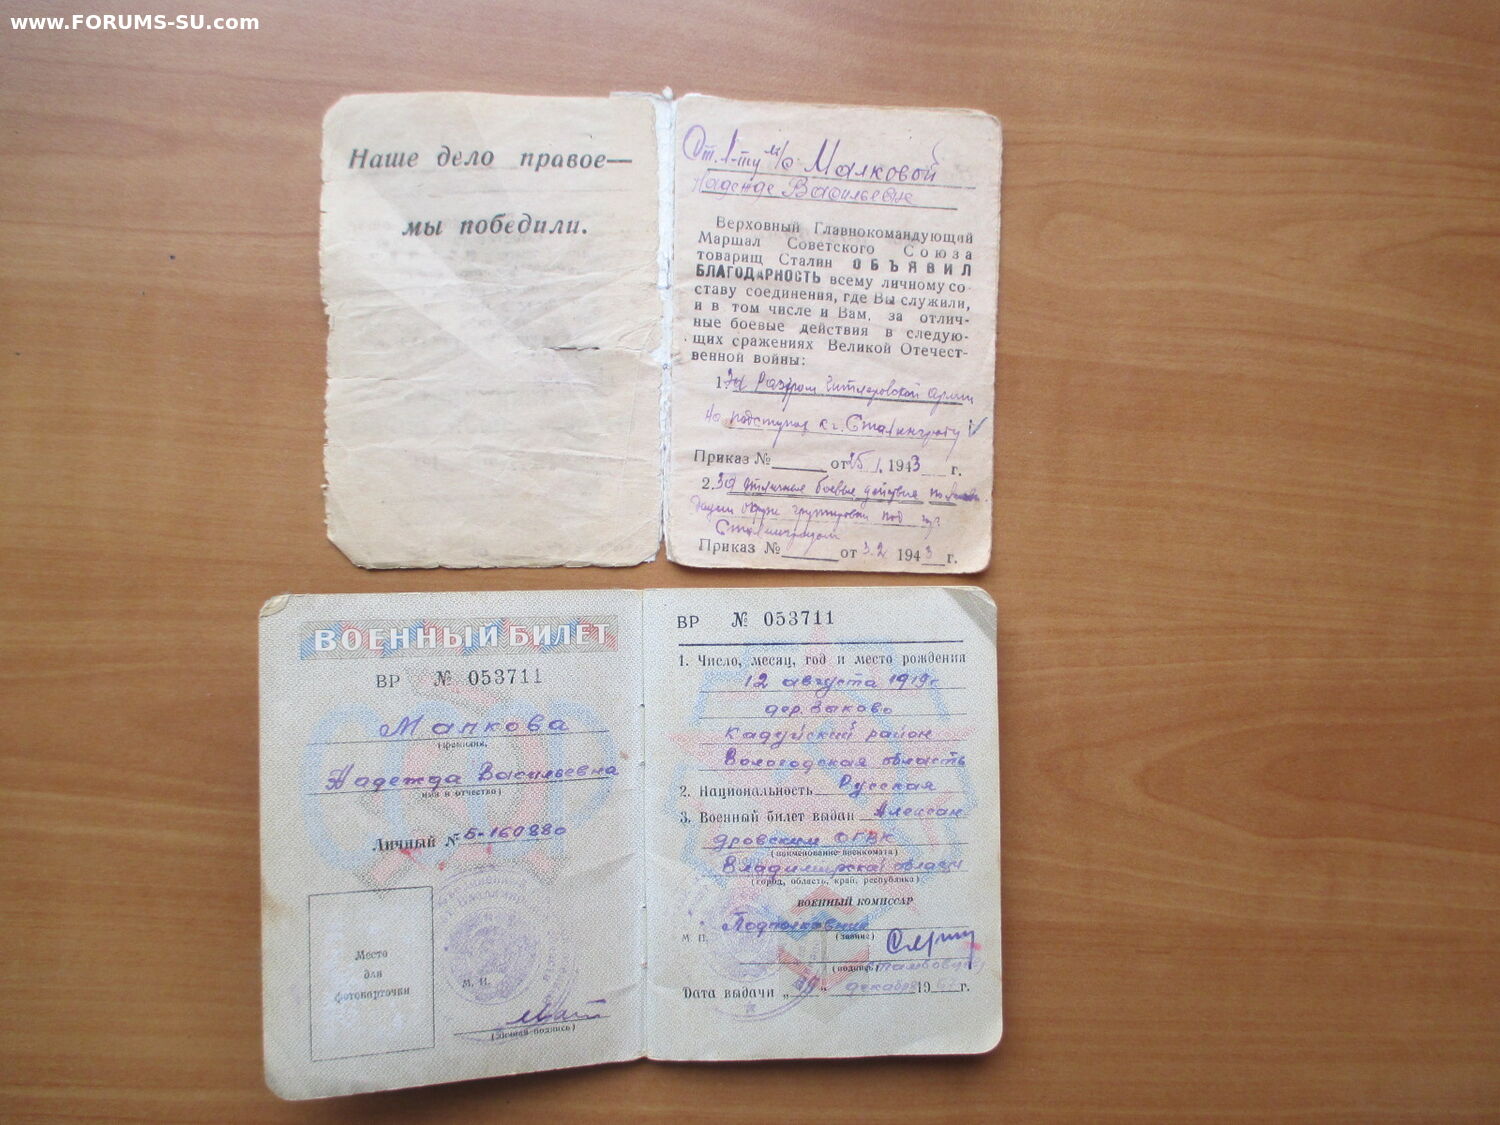 www.FORUMS-SU.com
Наше дело правое—
мы победили.
Ст. л-ту м/с Малковой
Надежде Васильевне
Верховный Главнокомандующий
Маршал Советского Союза
товарищ Сталин ОБЪЯВИЛ
БЛАГОДАРНОСТЬ всему личному со-
ставу соединения, где Вы служили,
и в том числе и Вам, за отлич-
ные боевые действия в следую-
щих сражениях Великой Отечест-
венной войны:
1. За Разгром Гитлеровской Армии
на подступах к г. Сталинграду
Приказ № от 25. 1. 1943 г.
2. За отличные боевые действия по ликви-
дации окруж группировки под
Сталинградом
Приказ № от 3.2 1943 г.
ВОЕННЫЙ БИЛЕТ
ВР № 053711
Малкова
(фамилия)
Надежда Васильевна
имя и отчество)
Личный № Б-160880
Место
для
фотокарточки
М. П.
(личная подпись)
ВР № 053711
1. Число, месяц, год и место рождения
12 августа 1919г
дер. Зыково
Кадуйский район
Вологодская область
2. Национальность Русская
3. Военный билет выдан Алексан
дровским ОГВК
(наименование военкомата)
Владимирской области
(город, область, край, республика)
ВОЕННЫЙ КОМИССАР
М. П. Подполковник
(звание)
(подпись)
Дата выдачи „ " декабря 19 г.